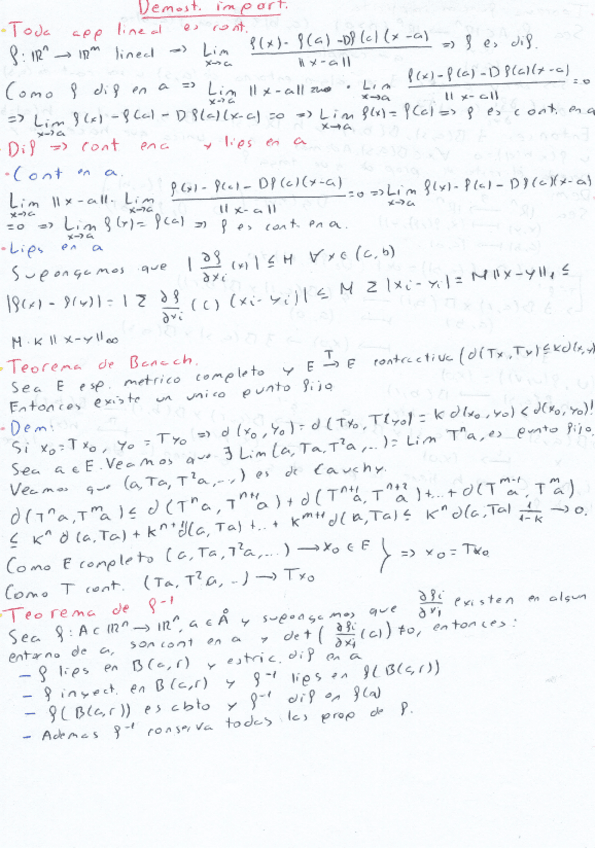 Demost. import.
· Toda app lineal es cont.
f: ℝⁿ → ℝᵐ lineal => Lim x→a (f(x) - f(a) - Df(a)(x-a)) / ||x-a|| => f es dif.
Como f dif en a => Lim x→a ||x-a|| · Lim x→a (f(x) - f(a) - Df(a)(x-a)) / ||x-a|| = 0
=> Lim x→a f(x) - f(a) - Df(a)(x-a) = 0 => Lim x→a f(x) = f(a) => f es cont. en a
· Dif => cont en a y lips en a
· Cont en a.
Lim x→a ||x-a|| · Lim x→a (f(x) - f(a) - Df(a)(x-a)) / ||x-a|| = 0 => Lim x→a f(x) - f(a) - Df(a)(x-a)
= 0 => Lim x→a f(x) = f(a) => f es cont. en a.
· Lips en a
Supongamos que |∂f/∂xi (x)| ≤ M ∀x∈(a,b)
|f(x) - f(y)| = |Σ ∂f/∂xi (c) (xi-yi)| ≤ M Σ|xi-yi| = M||x-y||₁ ≤
M·K||x-y||∞
· Teorema de Banach.
Sea E esp. metrico completo y E →T E contractiva (d(Tx,Ty) ≤ Kd(x,y)
Entonces existe un unico punto fijo
· Dem:
Si x₀=Tx₀, y₀=Ty₀ => d(x₀,y₀) = d(Tx₀,T(y₀) = K d(x₀,y₀) < d(x₀,y₀)!
Sea a∈E. Veamos que ∃ Lim(a,Ta,T²a,...) = Lim Tⁿa, es punto fijo.
Veamos que (a,Ta,T²a,...) es de Cauchy.
d(Tⁿa,Tᵐa) ≤ d(Tⁿa,Tⁿ⁺¹a) + d(Tⁿ⁺¹a,Tⁿ⁺²a) + ... + d(Tᵐ⁻¹a,Tᵐa)
≤ Kⁿd(a,Ta) + Kⁿ⁺¹d(a,Ta) + ... + Kᵐ⁺¹d(a,Ta) ≤ Kⁿd(a,Ta) 1/(1-K) → 0.
Como E completo (a,Ta,T²a,...) → x₀∈E } => x₀=Tx₀
Como T cont. (Ta,T²a,...) → Tx₀
· Teorema de f⁻¹
Sea f: A⊂ℝⁿ → ℝⁿ, a∈Å y supongamos que ∂fi/∂xj existen en algun
entorno de a, son cont en a y det(∂fi/∂xj (a)) ≠ 0, entonces:
- f lips en B(a,r) y estric. dif en a
- f inyect. en B(a,r) y f⁻¹ lips en f(B(a,r))
- f(B(a,r)) es abto y f⁻¹ dif en f(a)
- Ademas f⁻¹ conserva todas las prop de f.